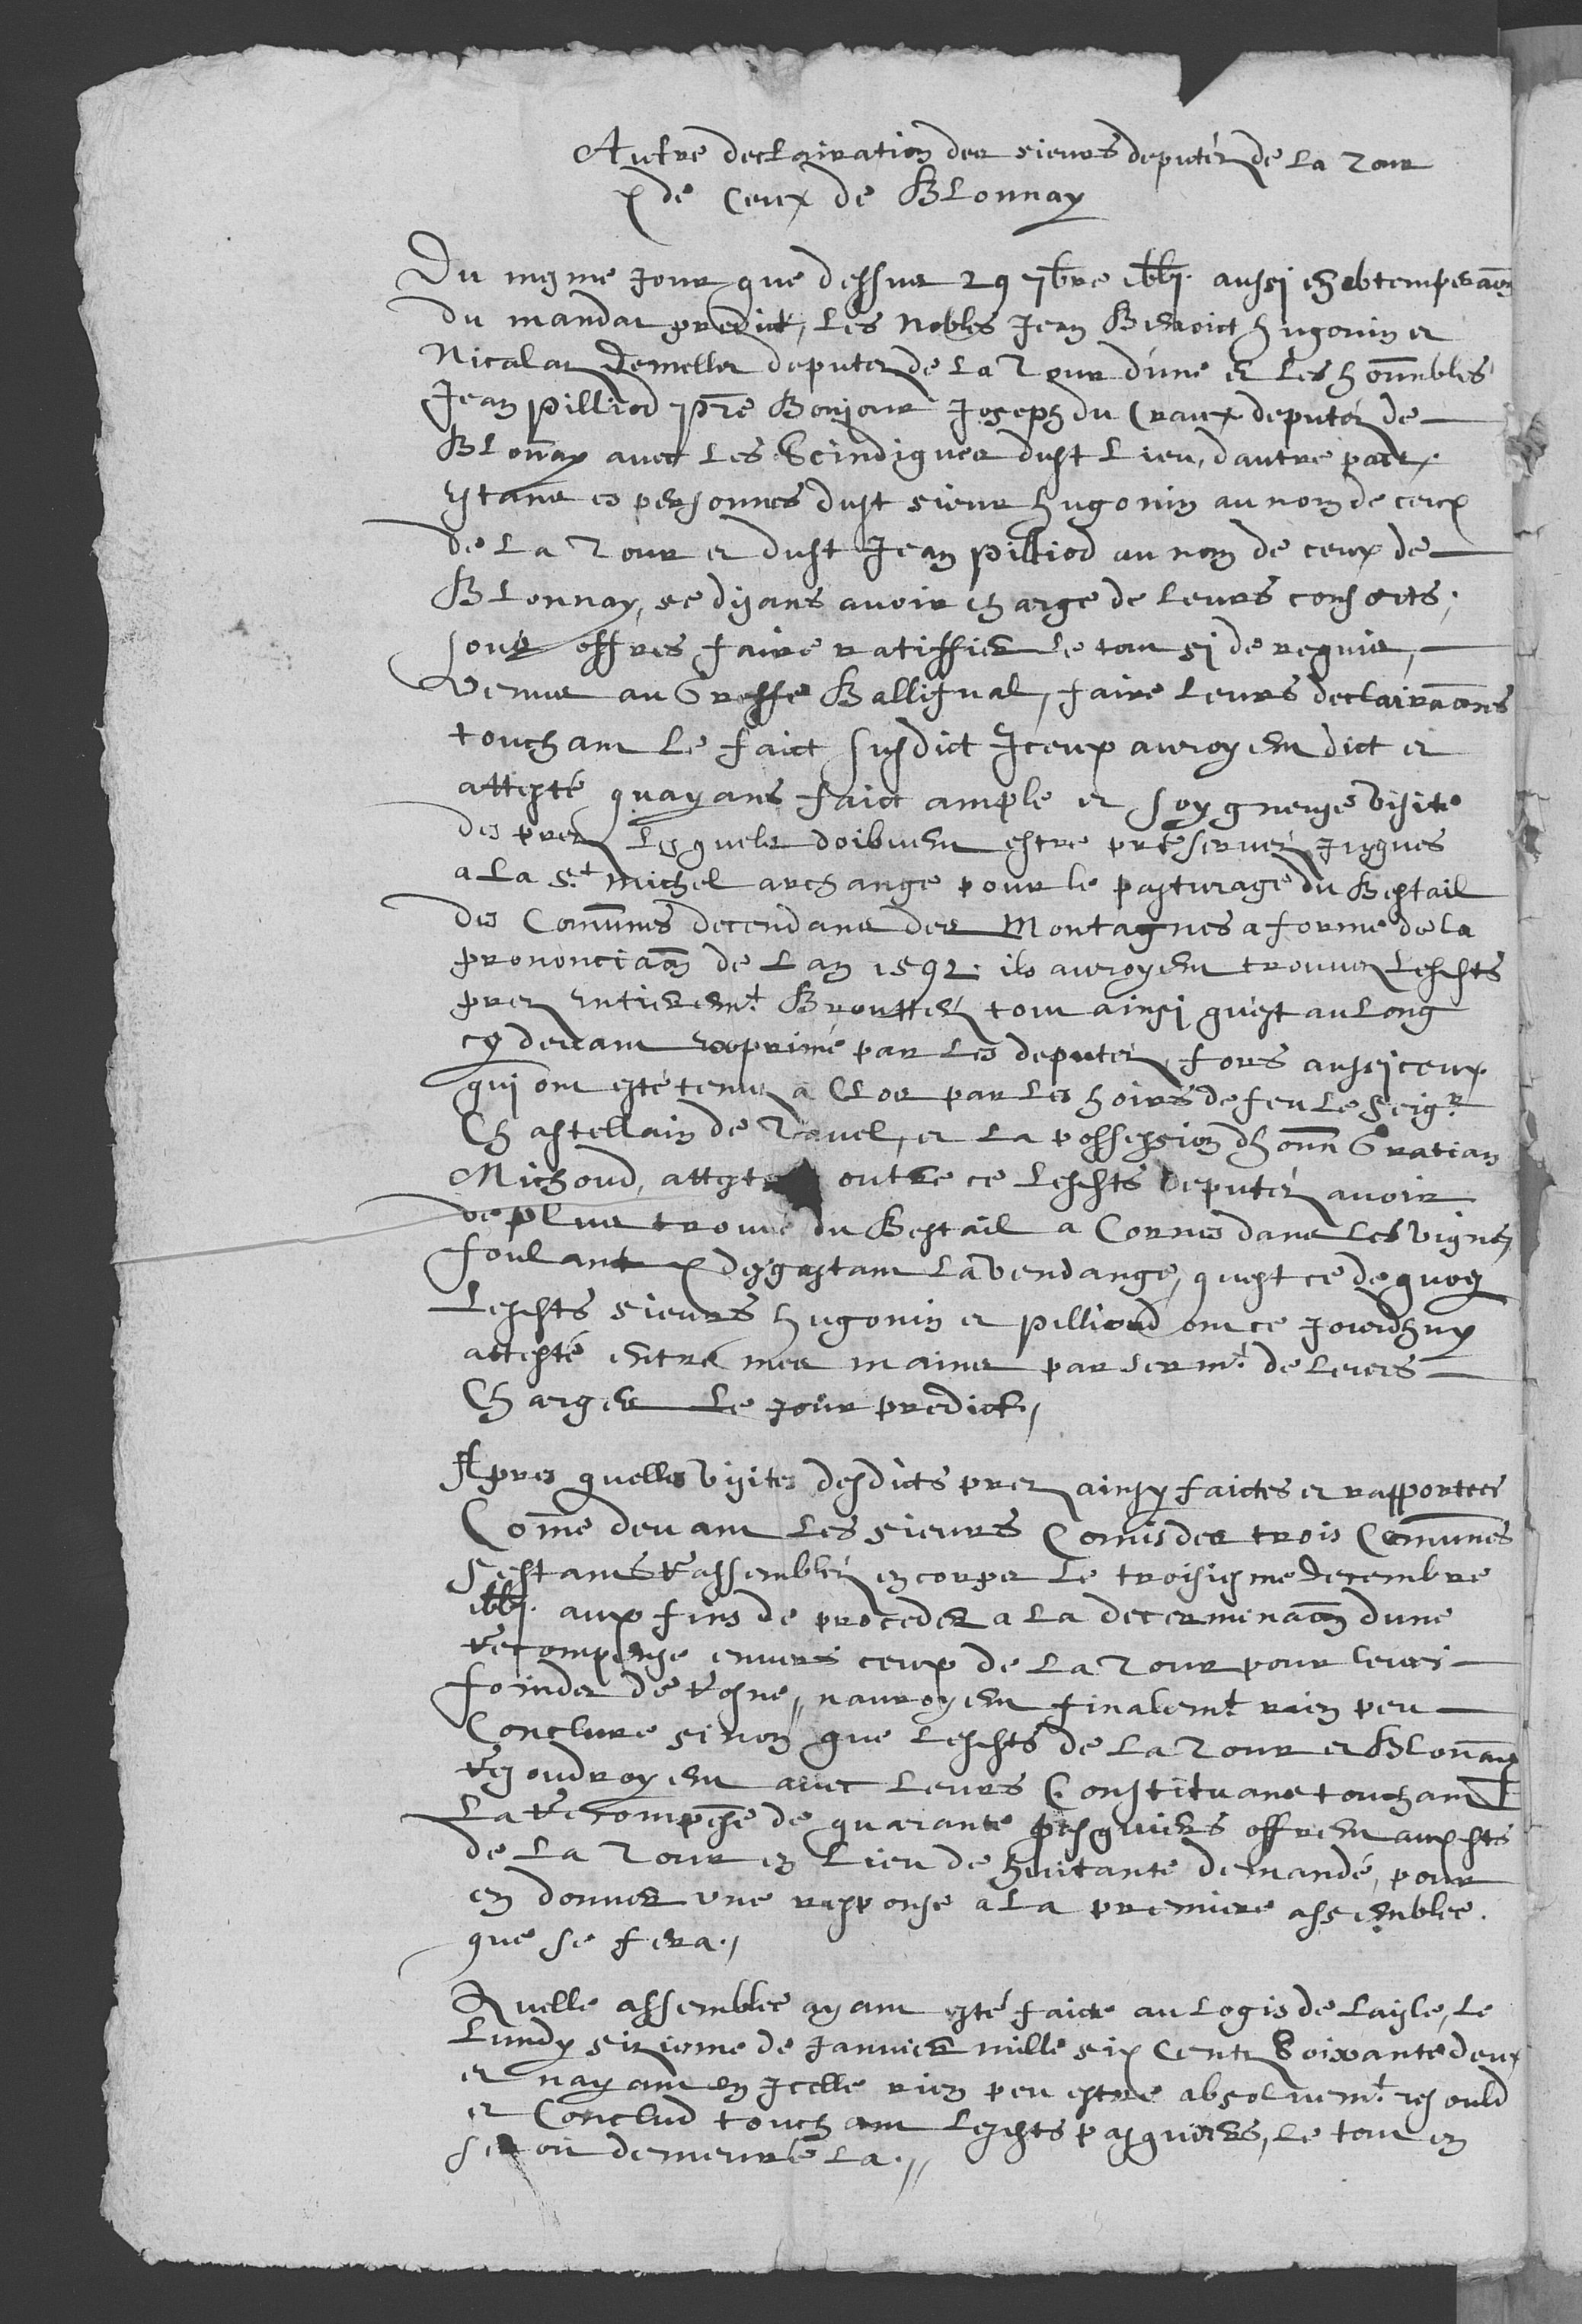 Autre declairation des sieurs deputéz de la Tour
& de ceux de Blonnay
Du mesme jour que dessus 29 7bre 1661. aussi en obtemperaõn
du mandat predict, les Nobles Jean Benoict Hugonin et
Nicolas Demellet deputez de la Tour d'une et les honnbles
Jean Pilliod Pre Bonjour Joseph du Craux deputéz de
Blonnay avec les Scindiques dudt lieu, dautre part,
estans es personnes dudt sieur Hugonin au nom de ceux
de la Tour et dudt Jean Pilliod au nom de ceux de
Blonnay, se disans avoir charge de leurs consorts,
sous offres faire ratiffier le tout si de requis,
venus au Greffe Ballifval, faire leurs declairaõns
touchant le faict susdict Iceux auroyent dict et
attesté quayans faict ample et soygneuse visite
des prez lesquels doibvent estre préservéz jusques
a la St Michel archange pour le pasturage du Bestail
des Comunes decendans des Montagnes a forme de la
prononciaõn de l'an 1592. ils auroyent trouvez lesdts
prez entieremt Brouttéz tout ainsi qu'est au long
cy devant exprimé par les deputéz, fors aussi ceux
qui ont esté tenuz a Clos par les hoirs de feu le Seigr
Chastellain de Tavel, et la possession dhonn Gratian
Michoud, outre ce lesdts deputéz avoir
de plus trouvé du Bestail a Cornes dans les vignes,
foulant & desgastant la vendange, quest ce de quoy
lesdts sieurs Hugonin et Pilliod ont ce jourdhuy
attesté entre mes mains par sermt de leurs
Charges le jour predict.
Apres quelles visites desdicts prez ainsy faictes et rapportees
Come devant les sieurs Comis des trois Comunes
sestans rassembléz en corps le troisiesme decembre
1661. aux fins de proceder a la determinaõn dune
recompense envers ceux de la Tour pour leurs
finalemt rien peu
Conclure sinon que lesdts de la Tour et Blonnay
resoudroyent avec leurs Constituans touchant
la recompense de quarante pasquiers offrent auxdts
de la Tour en lieu de huitante demandé, pour
en donner une response a la premiere assemblee
que se fera.
Quelle assemblee ayant esté faicte au logis de laisle, le
lundy sixieme de Janvier mille six Centz Soixante deux,
et nayant en Icelle rien peu estre absoluemt resould
et Conclud touchant lesdts pasquiers, le tout en
seroit demeuré la.